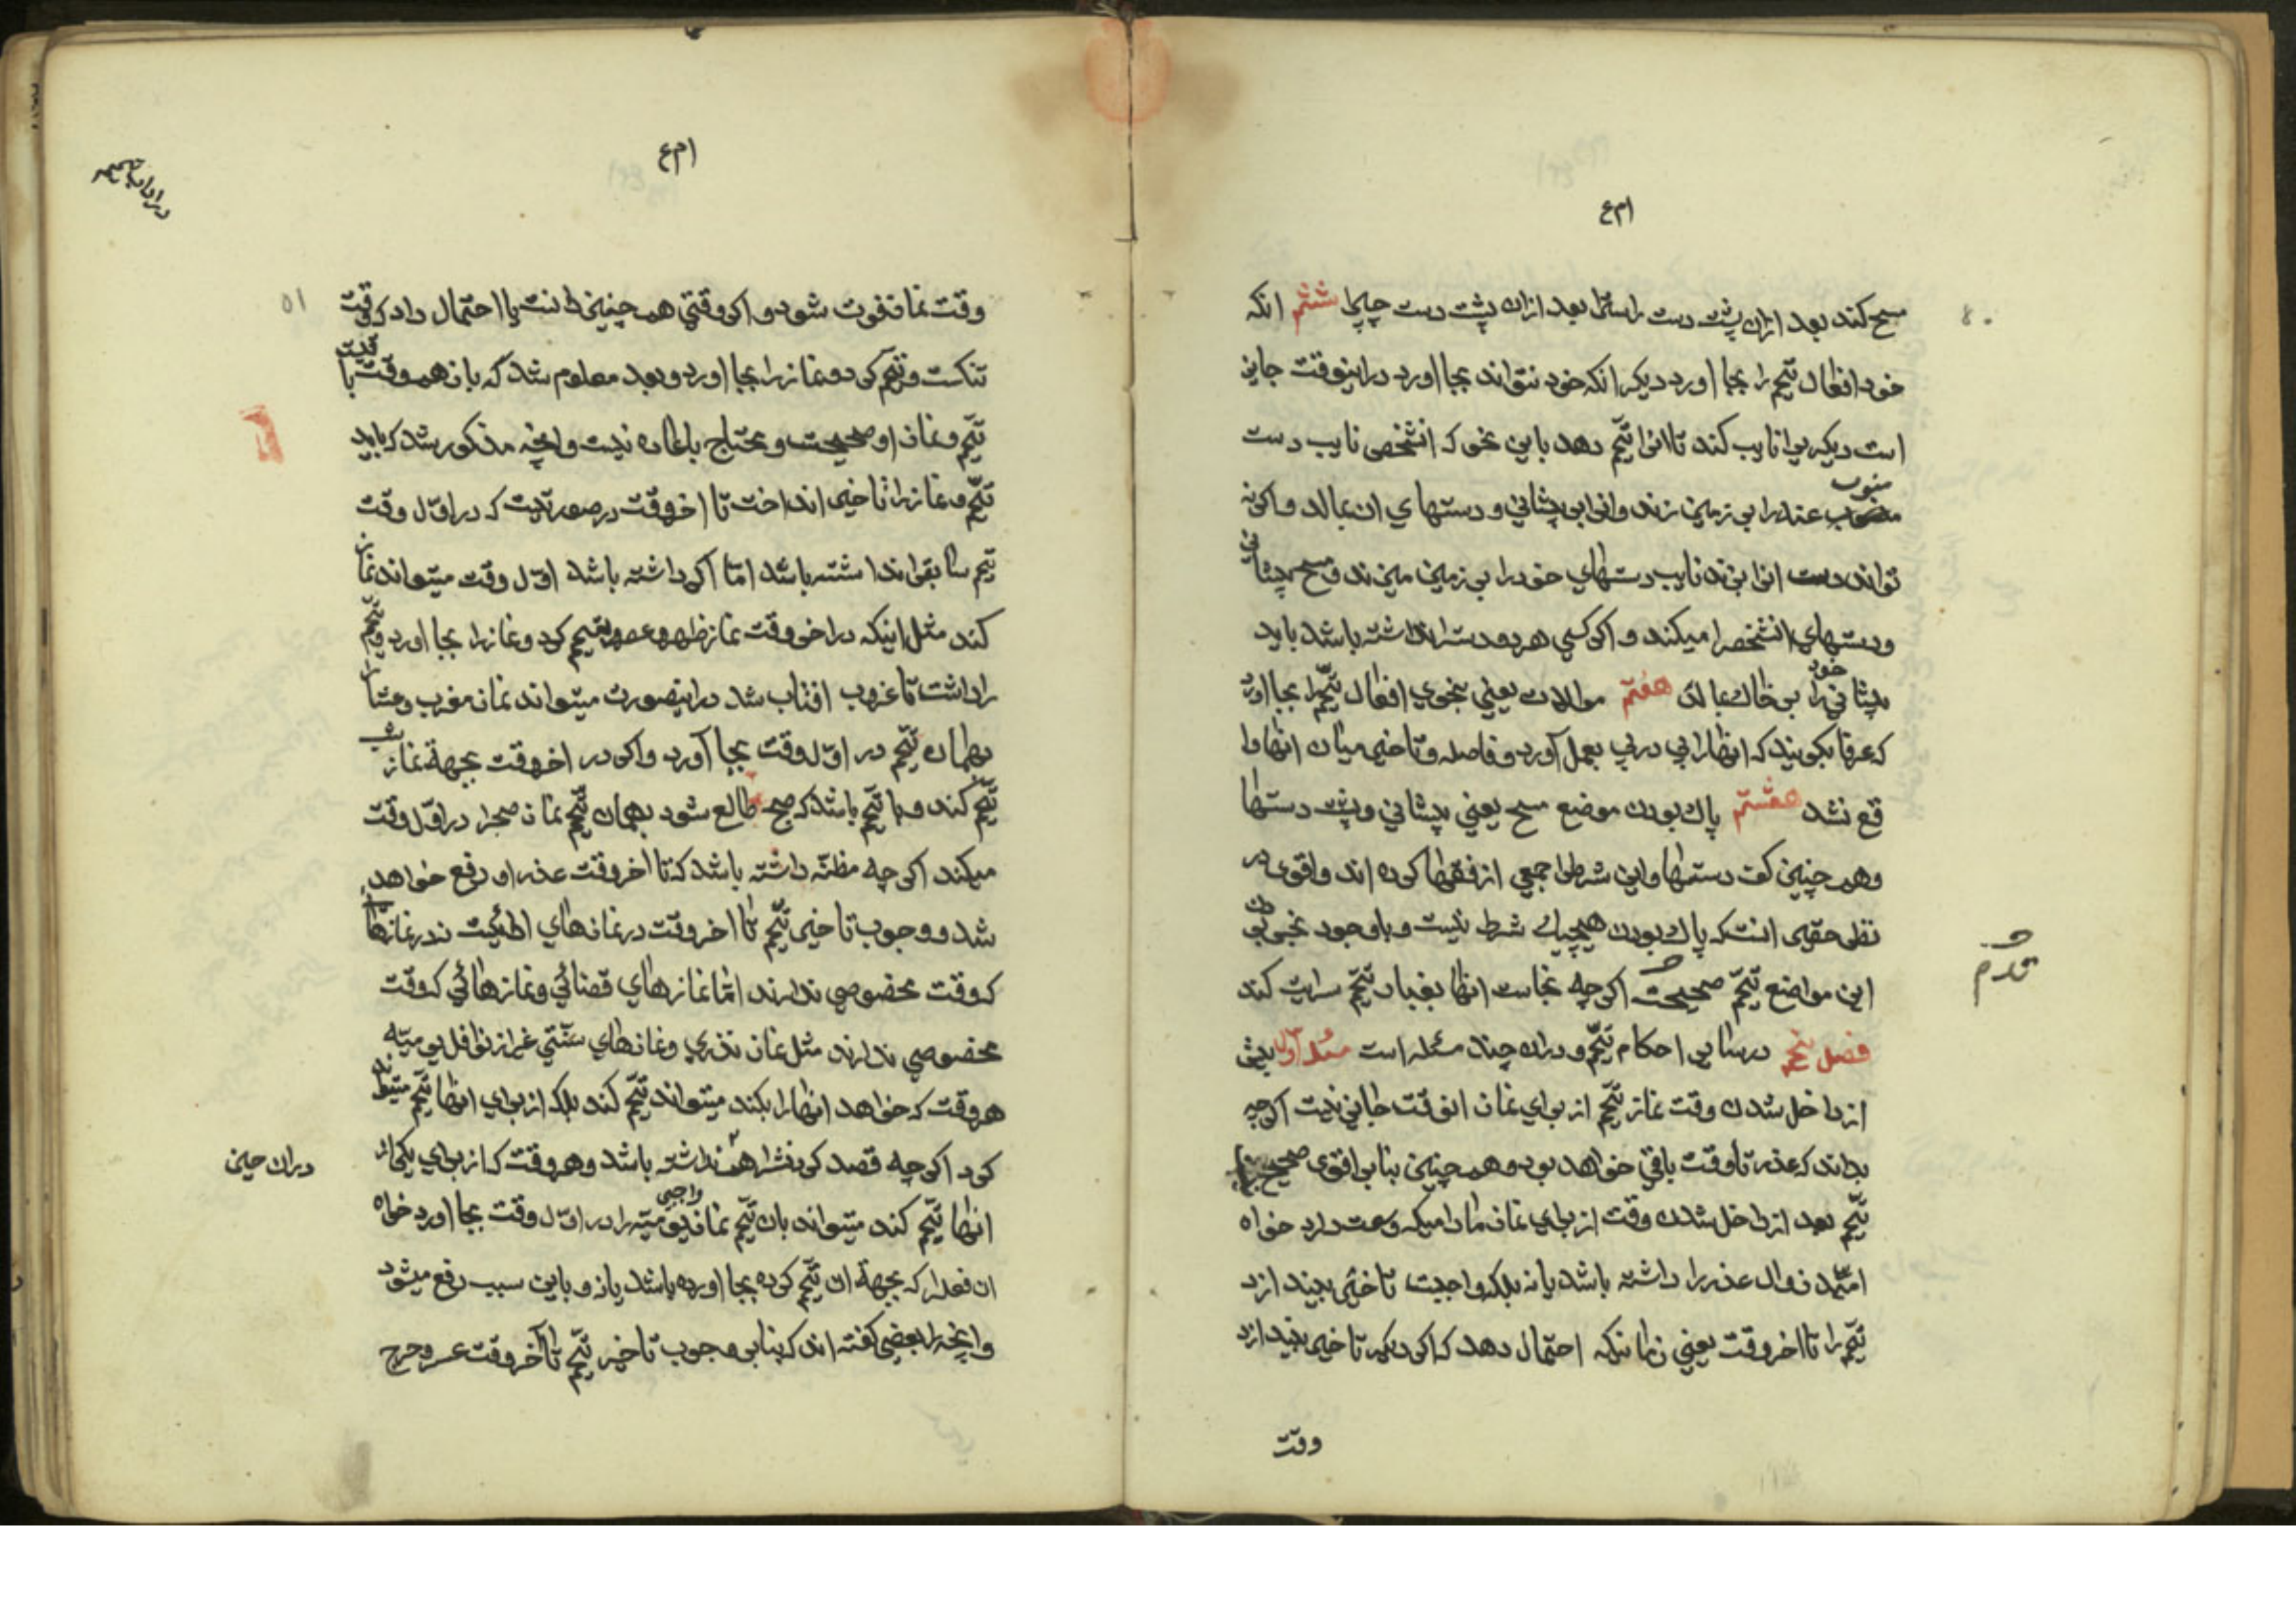 ام ع
مسح کند بعد ازان پشت دست راستراو بعد ازان پشت دست چپرا ششم انکه
خود افعال تیمم را بجا اورد دیکر انکه خود نتواند بجا اورد دراینوقت جایز
است دیکریرا نایب کند تا انرا تیمم دهد باین نحو که انشخص نایب دست
منوب عنه را بر زمین زند وانرا بر پیشانی و دستهای ان بمالد و اکر نه
تواند دست انرا بزند نایب دستهای خود را بر زمین میزند و مسح پیشانی
ودستهای انشخصرا میکند و اکر کسی هر دو دسترا نداشته باشد باید
پیشانی خود را بر خاک بمالد هفتم موالات یعنی بنحوی افعال تیمم را بجا اورد
که عرفا بکویند که انها را پی در پی بعمل آورد و فاصله و تاخیر میان انها وا
قع نشد هشتم پاک بودن موضع مسح یعنی پیشانی و پشت دستها
وهم چنین کف دستها و این شرط را جمعی از فقها کرده اند واقوی در
نظر حقیر انستکه پاک بودن هیچیک شرط نیست و باوجود نجس بودن
این مواضع تیمم صحیحست اکر چه نجاست انها بغبار تیمم سرایت کند
قدم
فصل پنجم در سایر احکام تیمم و دران چند مسئله است مسئله اول پیش
از داخل شدن وقت نماز تیمم از برای نماز انوقت جایز نیست اکر چه
بداند که عذر تا وقت باقی خواهد بود و هم چنین بنابر اقوی صحیح نیست
تیمم بعد از داخل شدن وقت از برای نماز مادامیکه وسعت دارد خواه
امید زوال عذر را داشته باشد یا نه بلکه واجبست تاخیر بیندازد
تیمم را تا اخر وقت یعنی زمانیکه احتمال دهد که اکر دیکر تاخیر بیندازد
وقت
ام ع
در اداب تیمم
وقت نماز فوت شود و اکر وقتی هم چنین دانست یا احتمال داد که وقت
تنکست و تیمم کرد و نماز را بجا اورد و بعد معلوم شد که باز هم وقت باقیست
تیمم و نماز او صحیحست و محتاج باعاده نیست وانچه مذکور شد که باید
تیمم و نماز را تاخیر انداخت تا اخر وقت در صورتیست که در اول وقت
تیمم سابقرا نداشته باشد اما اکر داشته باشد اول وقت میتواند نماز
کند مثل اینکه در اخر وقت نماز ظهر و عصر تیمم کرد و نماز را بجا اورد و تیمم
را داشت تا غروب افتاب شد دراینصورت میتواند نماز مغرب و عشا را
بهمان تیمم در اول وقت بجا آورد و اکر در اخر وقت بجهة نماز شب
تیمم کند و با تیمم باشد که صبح طالع شود بهمان تیمم نماز صبحرا در اول وقت
میکند اکر چه مظنه داشته باشد که تا اخر وقت عذر او رفع خواهد
شد و وجوب تاخیر تیمم تا اخر وقت در نمازهای ادائیست نه در نمازها
که وقت مخصوصی ندارند اما نمازهای قضائی و نمازهائی که وقت
مخصوصی ندارند مثل نماز نذری و نمازهای سنتی غیر از نوافل یومیه
هر وقت که خواهد انها را بکند میتواند تیمم کند بلکه از برای انها تیمم میتواند
کرد اکر چه قصد کردنش را هم نداشته باشد و هر وقت که از برای یکی از
دران حین
انها تیمم کند میتواند بان تیمم نماز واجبی یومیه را در اول وقت بجا اورد خواه
ان فعلرا که بجهة ان تیمم کرده بجا اورده باشد یا نه و باین سبب رفع میشود
وانچه را بعضی کفته اند که بنابر وجوب تاخیر تیمم تا آخر وقت عسر و حرج